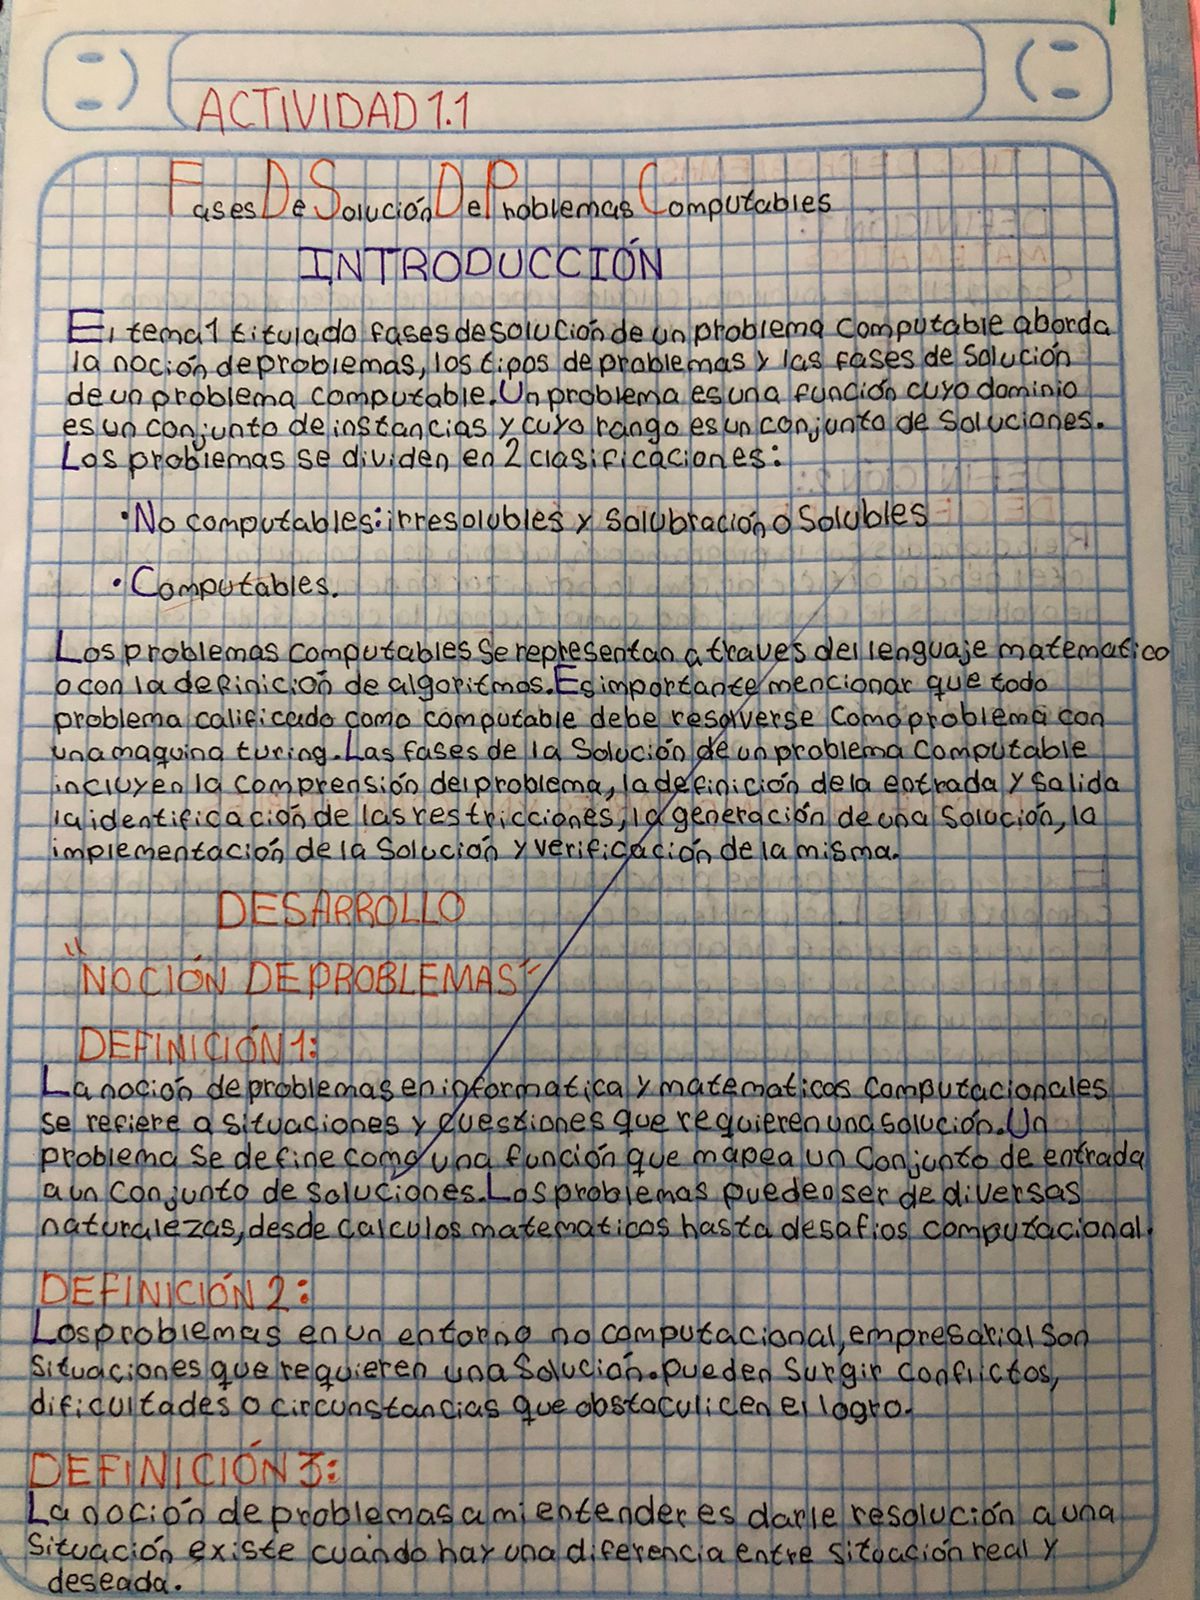 ACTIVIDAD 1.1
Fases De Solución De Problemas Computables
INTRODUCCIÓN
El tema 1 titulado fases de solución de un problema computable aborda
la noción de problemas, los tipos de problemas y las fases de solución
de un problema computable. Un problema es una función cuyo dominio
es un conjunto de instancias y cuyo rango es un conjunto de soluciones.
Los problemas se dividen en 2 clasificaciones:
• No computables: irresolubles y solubración o solubles
• Computables.
Los problemas computables se representan a traves del lenguaje matematico
o con la definición de algoritmos. Es importante mencionar que todo
problema calificado como computable debe resolverse como problema con
una maquina turing. Las fases de la solución de un problema computable
incluyen la comprensión del problema, la definición de la entrada y salida
la identificación de las restricciones, la generación de una solución, la
implementación de la solución y verificación de la misma.
DESARROLLO
"NOCIÓN DE PROBLEMAS"
DEFINICIÓN 1:
La noción de problemas en informatica y matematicas computacionales
se refiere a situaciones y cuestiones que requieren una solución. Un
problema se define como una función que mapea un conjunto de entrada
a un conjunto de soluciones. Los problemas pueden ser de diversas
naturalezas, desde calculos matematicos hasta desafios computacional.
DEFINICIÓN 2:
Los problemas en un entorno no computacional, empresarial son
situaciones que requieren una solución. pueden surgir conflictos,
dificultades o circunstancias que obstaculicen el logro.
DEFINICIÓN 3:
La noción de problemas a mi entender es darle resolución a una
situación existe cuándo hay una diferencia entre situación real y
deseada.